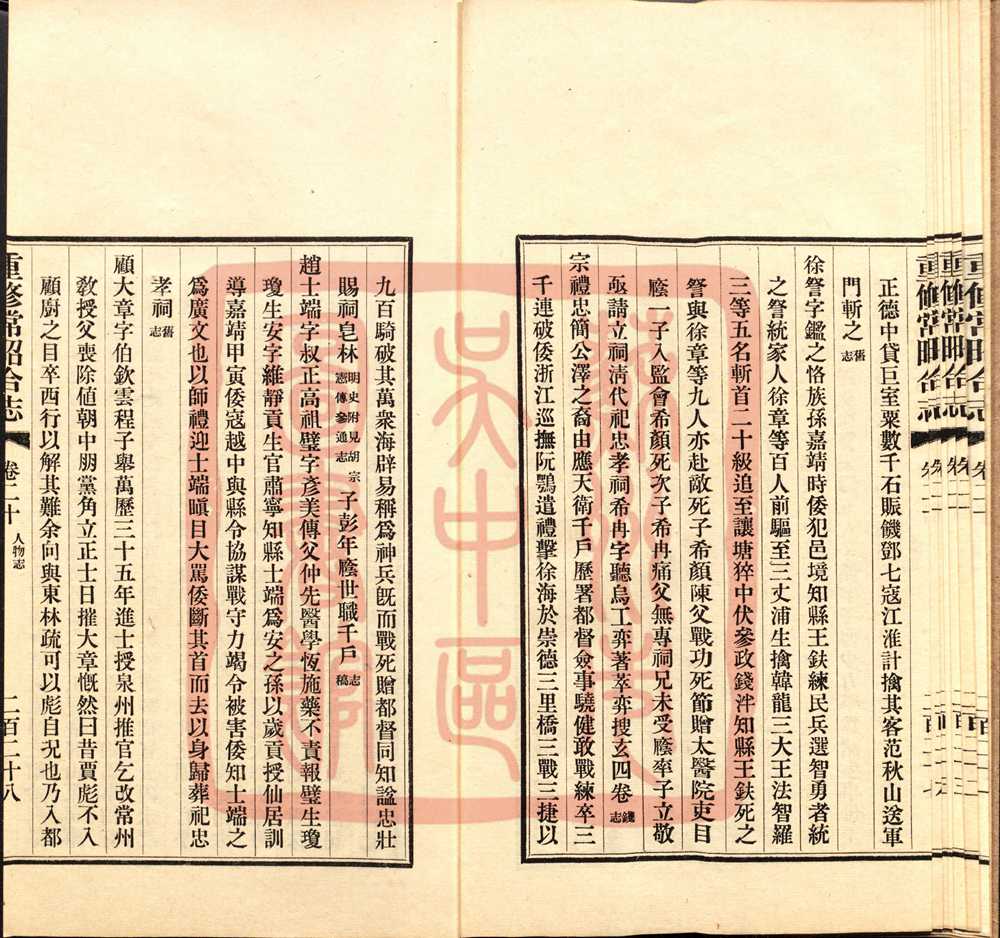 正德中貸巨室粟數千石賑饑鄧七寇江淮計擒其客范秋山送軍
門斬之舊志
徐詧字鑑之恪族孫嘉靖時倭犯邑境知縣王鈇練民兵選智勇者統
之詧統家人徐章等百人前驅至三丈浦生擒韓龍三大王法智羅
三等五名斬首二十級追至讓塘猝中伏參政錢泮知縣王鈇死之
詧與徐章等九人亦赴敵死子希顏陳父戰功死節贈太醫院吏目
廕一子入監會希顏死次子希冉痛父無專祠兄未受廕率子立敬
亟請立祠淸代祀忠孝祠希冉字聽烏工弈著萃弈搜玄四卷錢志
宗禮忠簡公澤之裔由應天衛千戶歷署都督僉事驍健敢戰練卒三
千連破倭浙江巡撫阮鶚遣禮擊徐海於崇德三里橋三戰三捷以
九百騎破其萬衆海辟易稱爲神兵旣而戰死贈都督同知諡忠壯
賜祠皂林明史附見胡宗憲傳參通志子彭年廕世職千戶志稿
趙士端字叔正高祖璧字彥美傳父仲先醫學恆施藥不責報璧生瓊
瓊生安字維靜貢生官肅寧知縣士端爲安之孫以歲貢授仙居訓
導嘉靖甲寅倭寇越中與縣令協謀戰守力竭令被害倭知士端之
爲廣文也以師禮迎士端瞋目大罵倭斷其首而去以身歸葬祀忠
孝祠舊志
顧大章字伯欽雲程子舉萬歷三十五年進士授泉州推官乞改常州
敎授父喪除値朝中朋黨角立正士日摧大章慨然曰昔賈彪不入
顧廚之目卒西行以解其難余向與東林疏可以彪自況也乃入都
重修常昭合志 卷二十 人物志 二百二十八